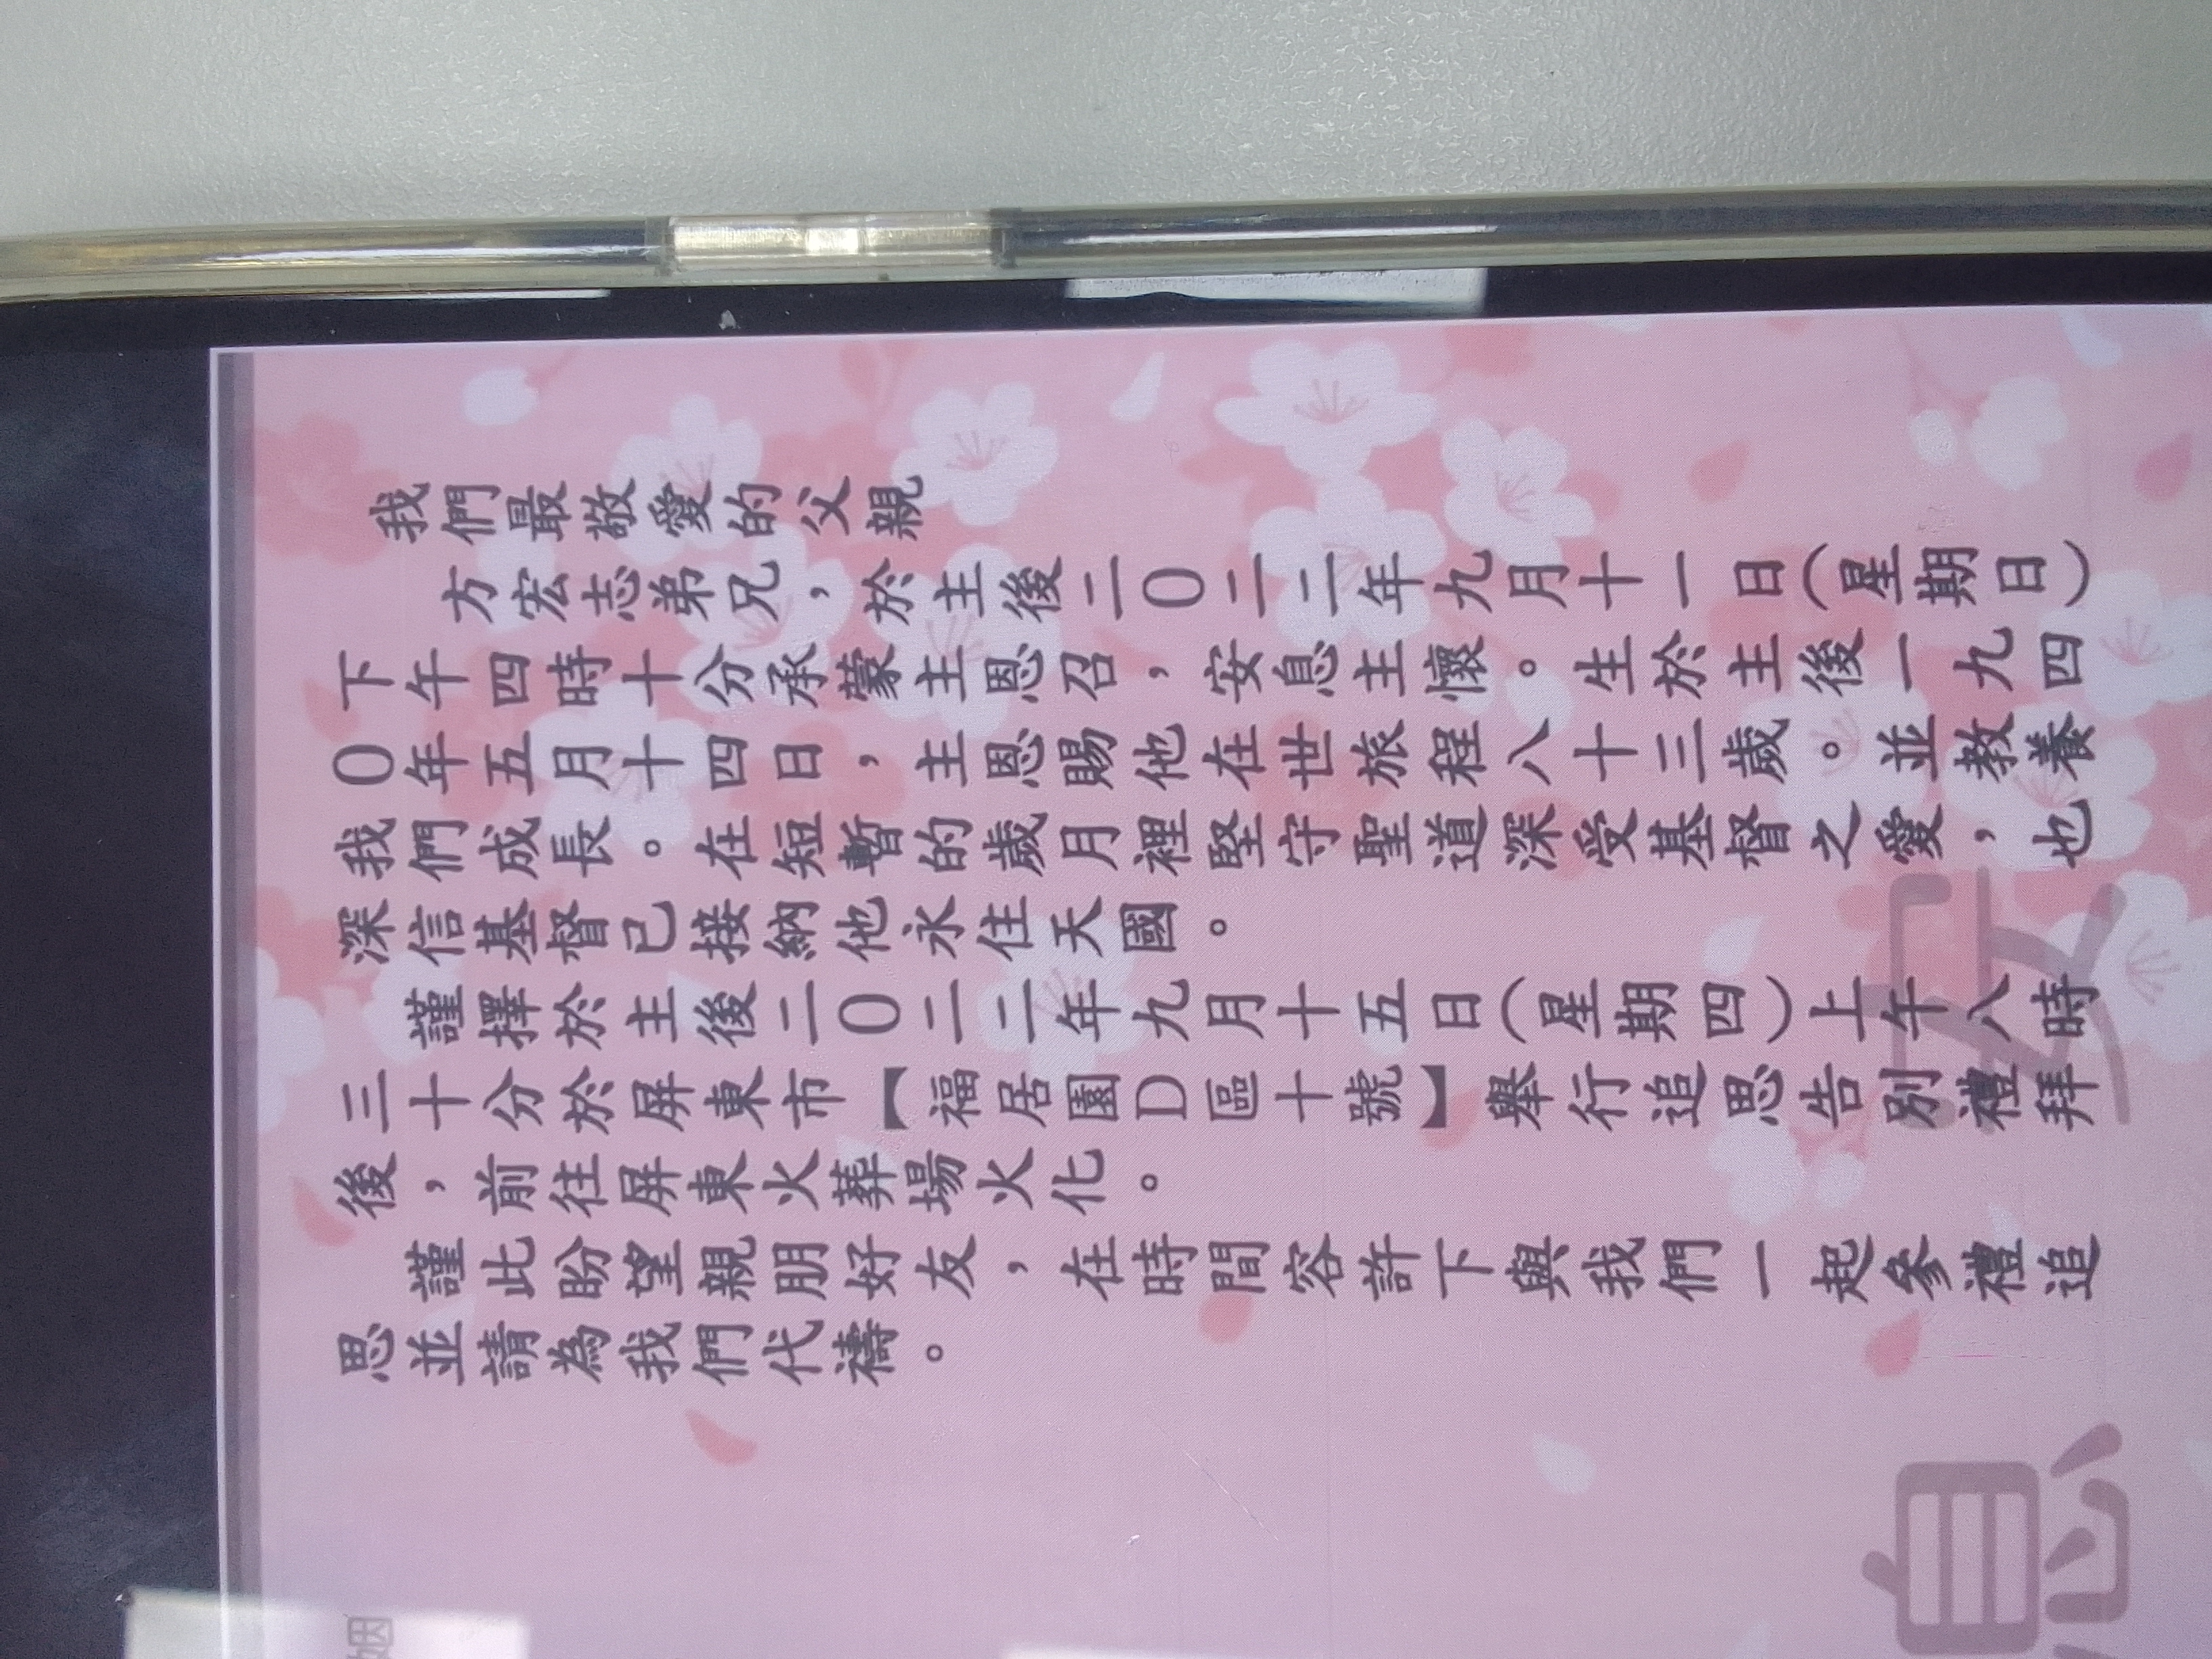 我們最敬愛的父親
方宏志弟兄，於主後二０二二年九月十一日(星期日)
下午四時十分承蒙主恩召，安息主懷。生於主後一九四
０年五月十四日，主恩賜他在世旅程八十三歲。並教養
我們成長。在短暫的歲月裡堅守聖道深受基督之愛，也
深信基督已接納他永住天國。
謹擇於主後二０二二年九月十五日(星期四)上午八時
三十分於屏東市【福居園D區十號】舉行追思告別禮拜
後，前往屏東火葬場火化。
謹此盼望親朋好友，在時間容許下與我們一起參禮追
思並請為我們代禱。
息
姻